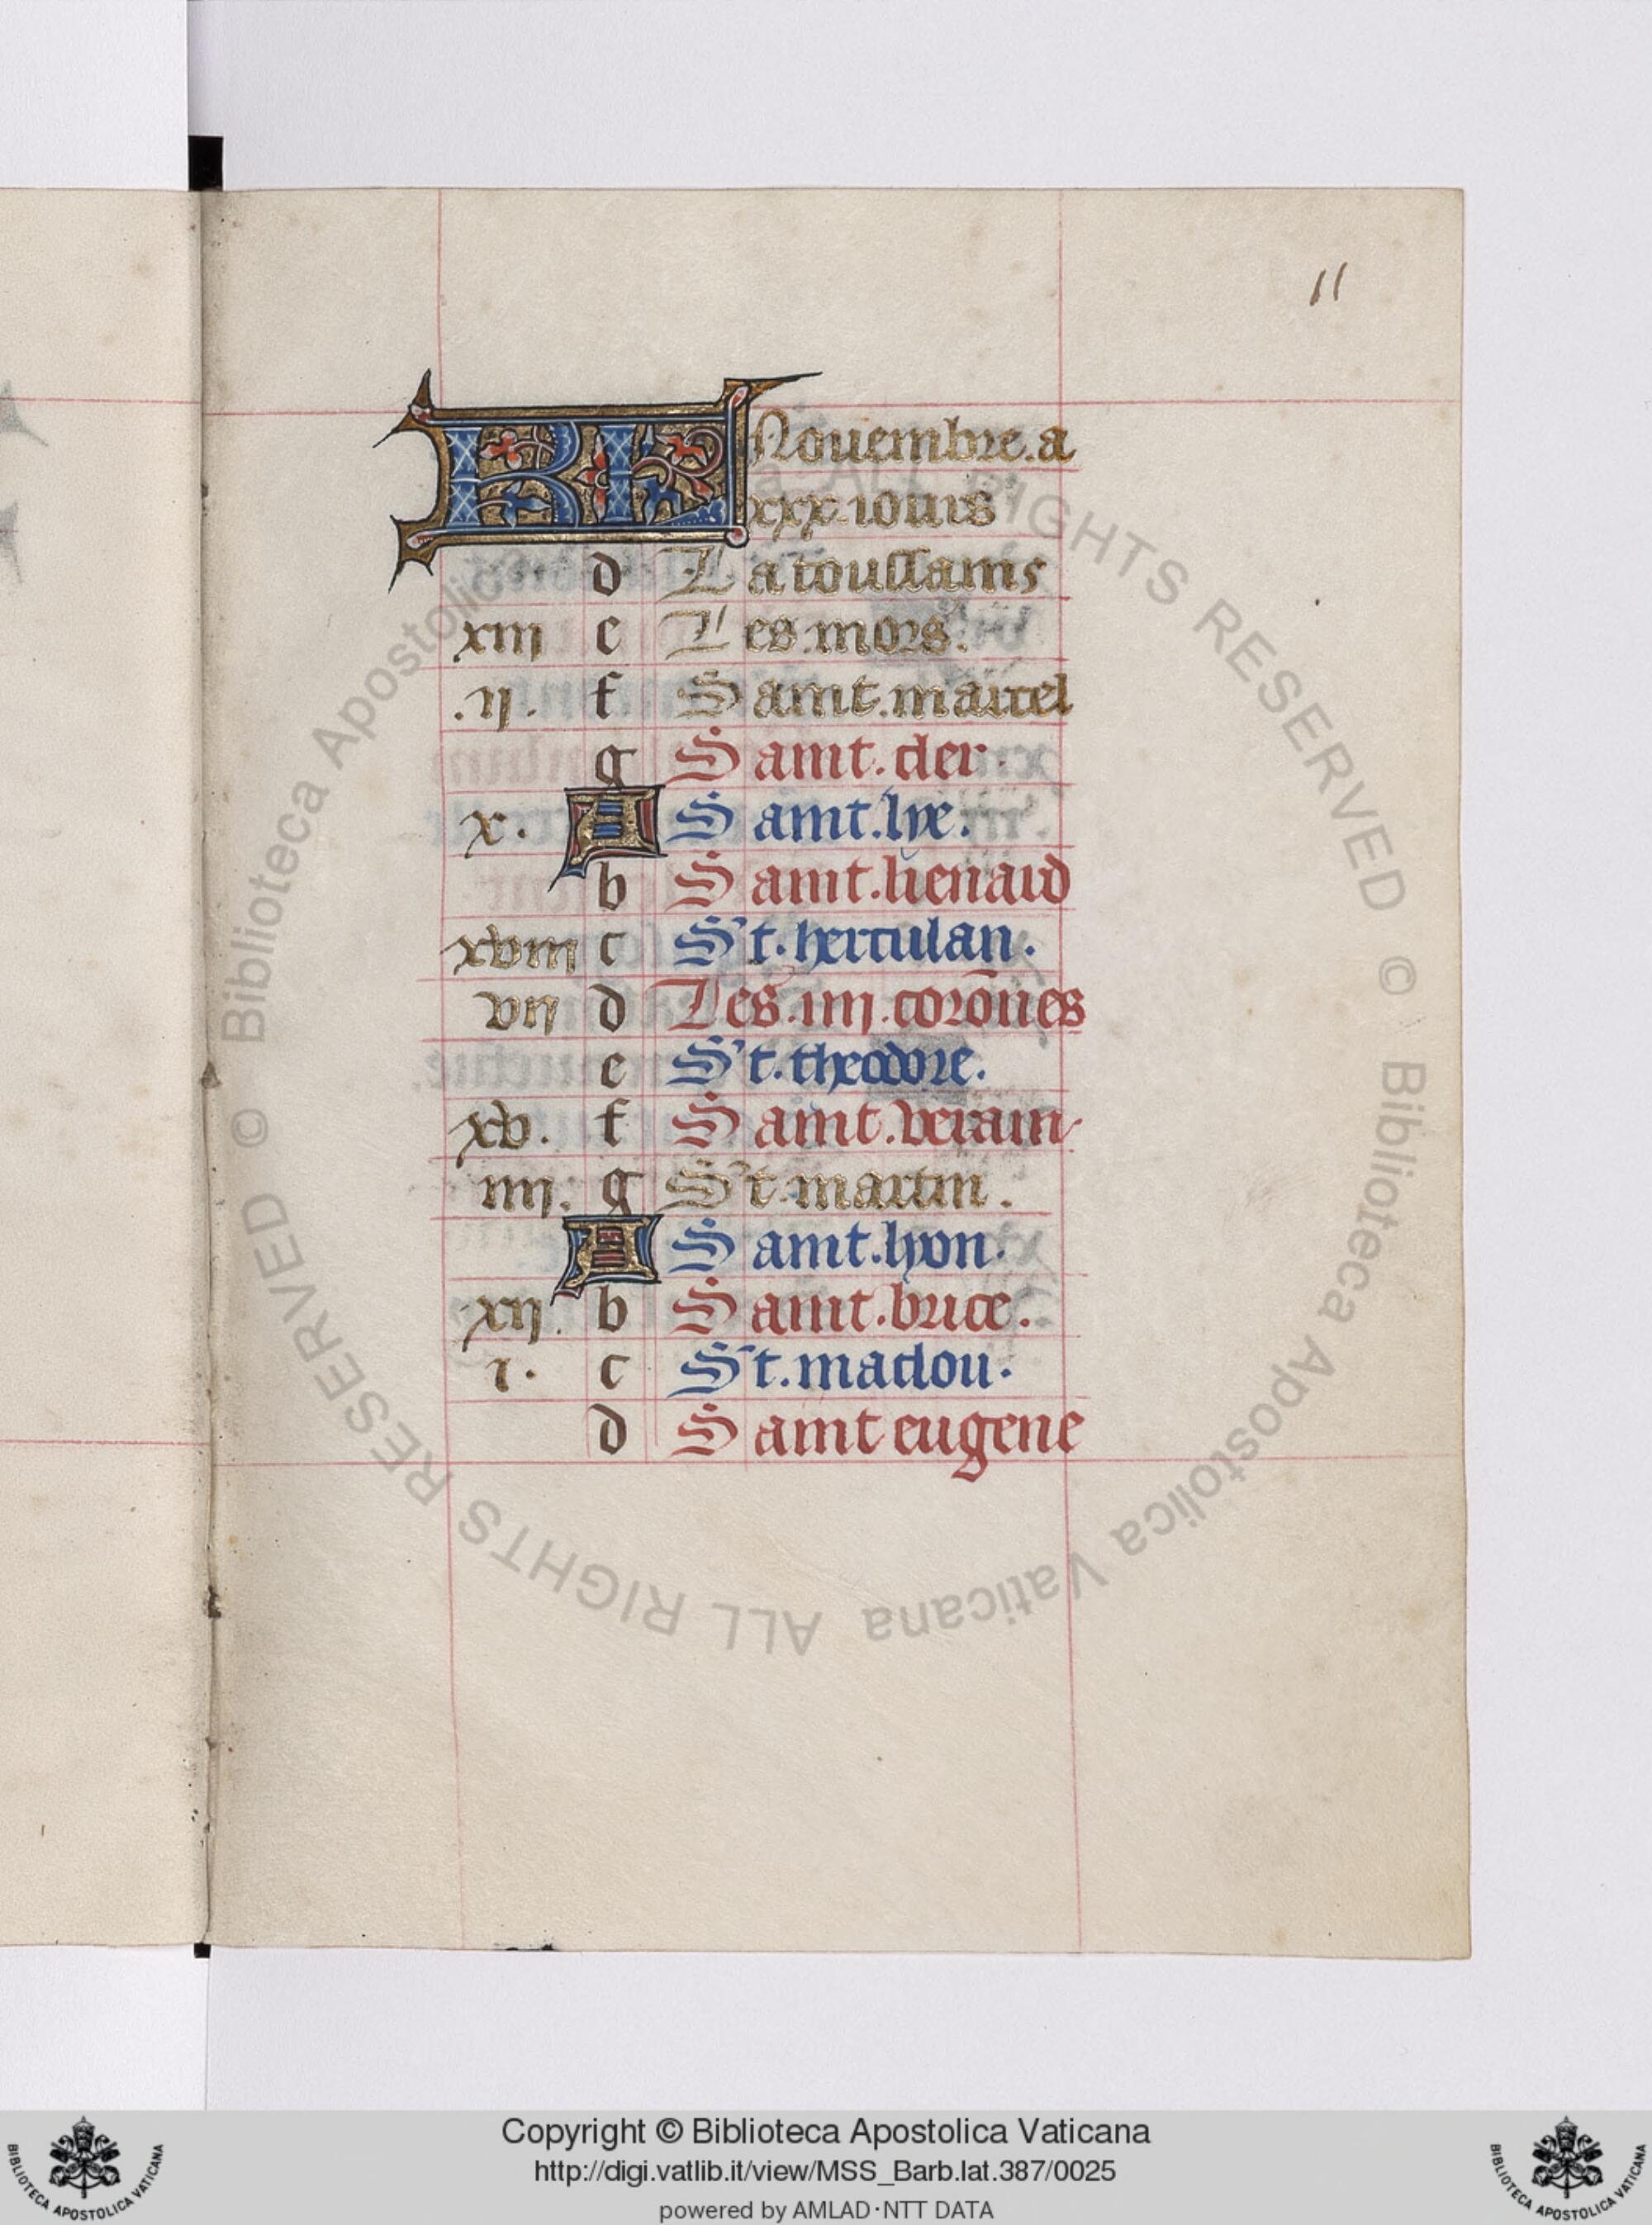 11
KL Nouembre.a
xxx iours
d La toussains
xiij e Les.mors.
.ij. f Saint.marcel
g Saint.cler.
x. A Saint.lye.
b Saint.lienard
xviij c St.herculan.
vij d Les.iiij.coro̅nes
e St.theodore.
xv. f Saint.verain
iiij. g St.martin.
A Saint.lyon.
xij. b Saint.brice.
i. c St.maclou.
d Saint eugene
© Biblioteca Apostolica Vaticana ALL RIGHTS RESERVED © Biblioteca Apostolica Vaticana ALL RIGHTS RESERVED
Copyright © Biblioteca Apostolica Vaticana
http://digi.vatlib.it/view/MSS_Barb.lat.387/0025
powered by AMLAD·NTT DATA
BIBLIOTECA APOSTOLICA VATICANA
BIBLIOTECA APOSTOLICA VATICANA